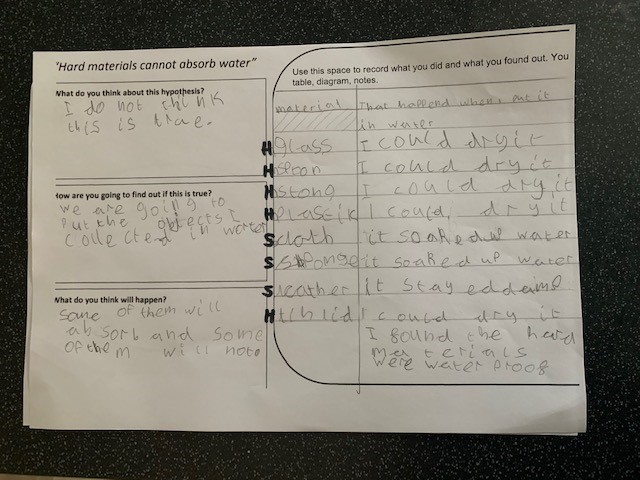 "Hard materials cannot absorb water"
What do you think about this hypothesis?
I do not think
this is true.
How are you going to find out if this is true?
we are going to
put the objects I
collected in water
What do you think will happen?
some of them will
absorb and some
of them will not.
Use this space to record what you did and what you found out. You
table, diagram, notes.
material that happend when I put it
in water
H glass I could dry it
H spoon I could dry it
H stong I could dry it
H plastik I could dry it
S cloth it soaked up water
S sponge it soaked up water
S leather it stayed damp
H tih lid I could dry it
I found the hard
materials
were water proof